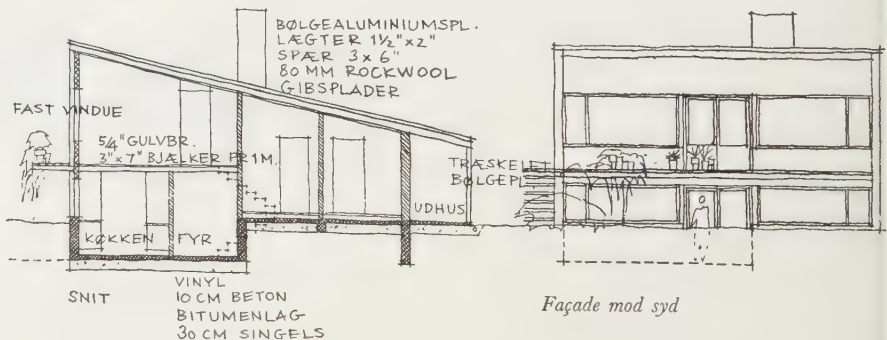 BØLGEALUMINIUMSPL.
LÆGTER 1½"x2"
SPÆR 3x6"
80 MM ROCKWOOL
GIBSPLADER
FAST VINDUE
5/4" GULVBR.
3"x7" BJÆLKER PR 1M.
TRÆSKELET
BØLGEPL
UDHUS
KØKKEN
FYR
SNIT
VINYL
10 CM BETON
BITUMENLAG
30 CM SINGELS
Façade mod syd